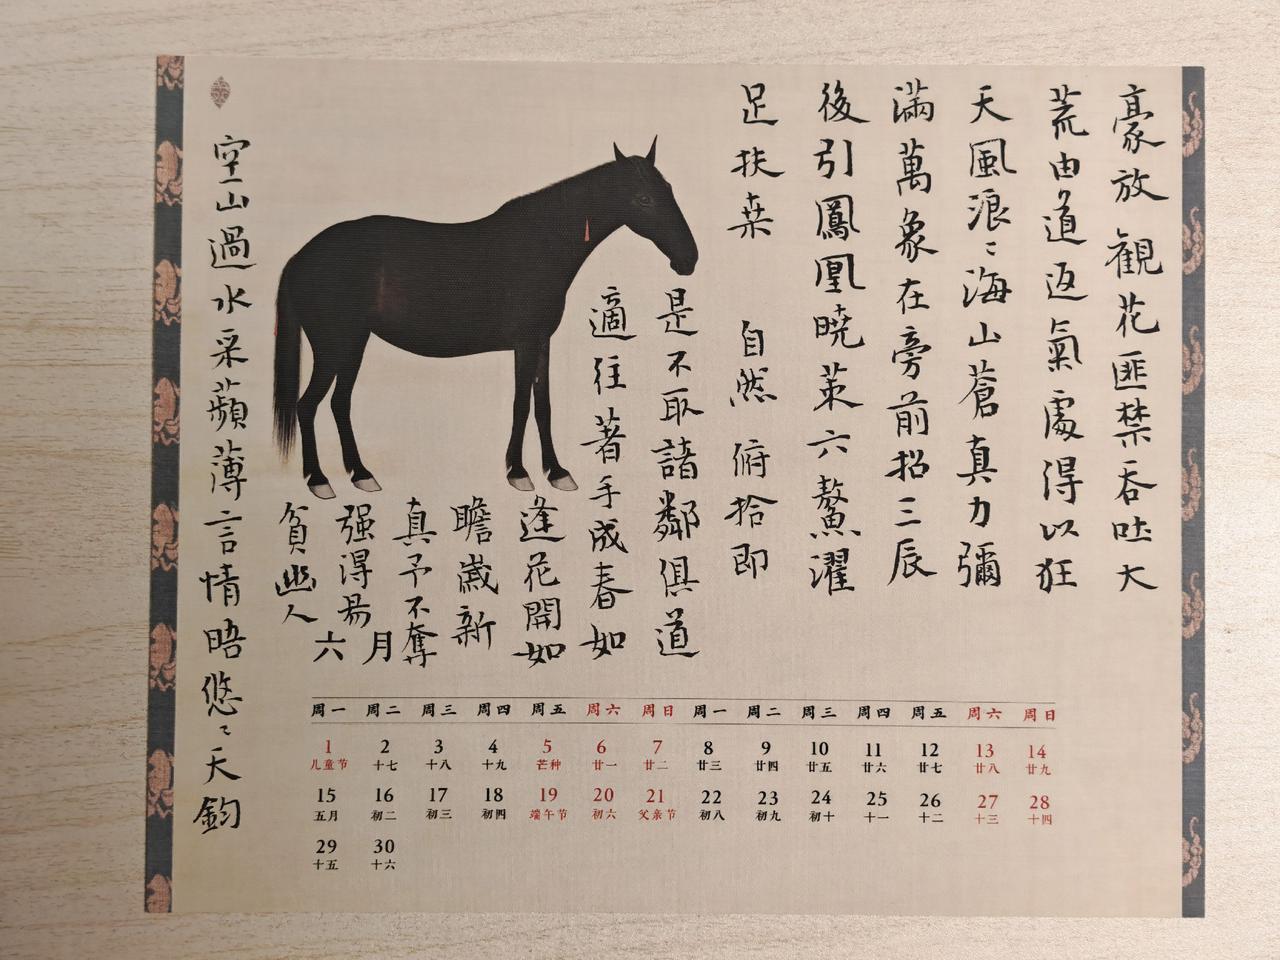 豪放 觀花匪禁吞吐大
荒由道返氣處得以狂
天風浪〻海山蒼真力彌
滿萬象在旁前招三辰
後引鳳凰曉策六鰲濯
足扶桒 自然 俯拾即
是不取諸鄰俱道
適往著手成春如
逢花開如
瞻歲新
真予不奪
强得易
貧幽人
空山過水采蘋薄言情晤悠〻天鈞
六月
周一 周二 周三 周四 周五 周六 周日 周一 周二 周三 周四 周五 周六 周日
1 2 3 4 5 6 7 8 9 10 11 12 13 14
儿童节 十七 十八 十九 芒种 廿一 廿二 廿三 廿四 廿五 廿六 廿七 廿八 廿九
15 16 17 18 19 20 21 22 23 24 25 26 27 28
五月 初二 初三 初四 端午节 初六 父亲节 初八 初九 初十 十一 十二 十三 十四
29 30
十五 十六